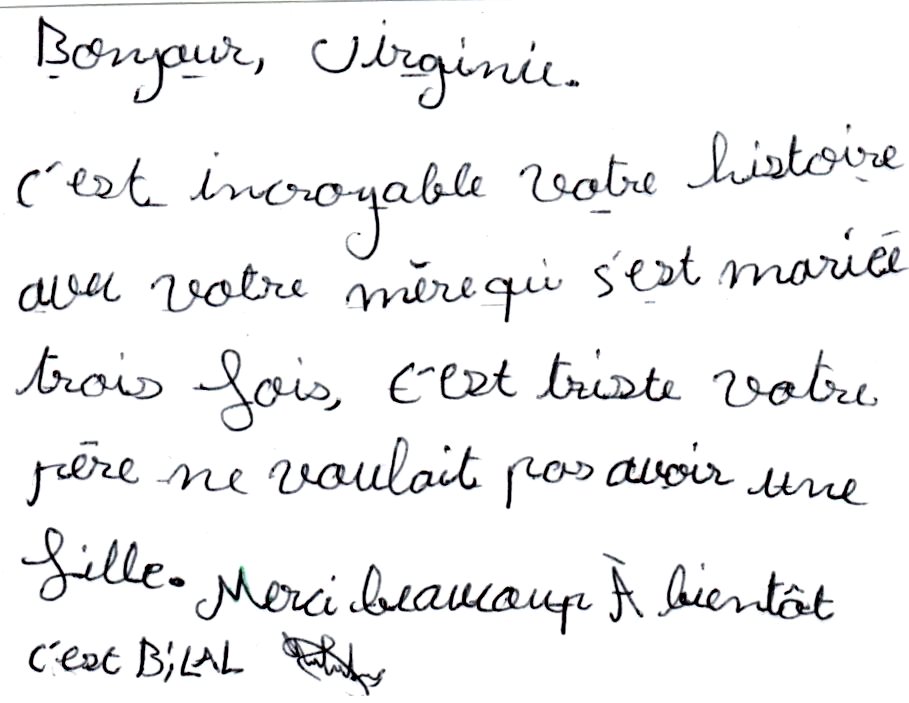 Bonjour, Virginie.
c'est incroyable votre histoire
avec votre mère qui s'est mariée
trois fois, c'est triste votre
père ne voulait pas avoir une
fille. Merci beaucoup À bientôt
c'est BiLAL